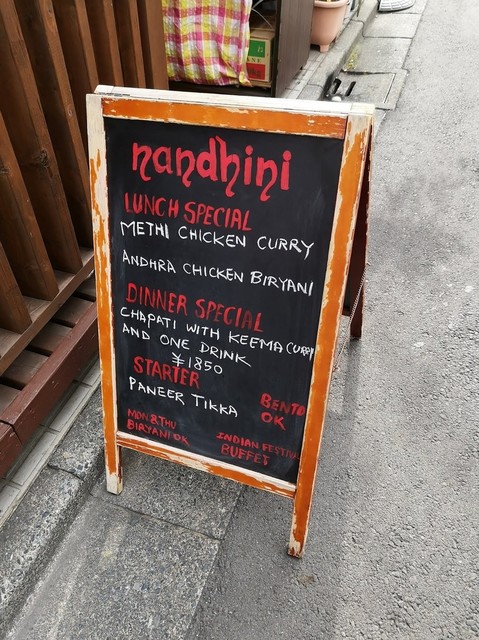 nandhini
LUNCH SPECIAL
METHI CHICKEN CURRY
ANDHRA CHICKEN BIRYANI
DINNER SPECIAL
CHAPATI WITH KEEMA CURRY
AND ONE DRINK
¥1850
STARTER
PANEER TIKKA
BENTO
OK
MON & THU
BIRYANI OK
INDIAN FESTIVAL
BUFFET